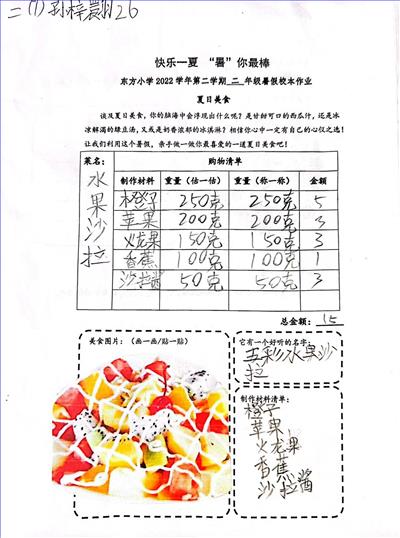 二(1) 孙梓 26
快乐一夏 “暑”你最棒
东方小学2022学年第二学期 二 年级暑假校本作业
夏日美食
谈及夏日美食，你的脑海中会浮现出什么呢？是甘甜可口的西瓜汁，还是冰
凉解渴的绿豆汤，又或是奶香浓郁的冰淇淋？相信你心中一定有自己的心仪之选！
让我们利用这个暑假，亲手做一做你最喜爱的一道夏日美食吧！
菜名： 购物清单
水果沙拉
制作材料 重量（估一估） 重量（称一称） 金额
橙子 250克 250克 5
苹果 200克 200克 3
火龙果 150克 150克 3
香蕉 100克 100克 1
沙拉酱 50克 50克 3
总金额： 15
美食图片：（画一画/贴一贴）
它有一个好听的名字：
五彩水果沙
拉
制作材料清单：
橙子
苹果
火龙果
香蕉
沙拉酱